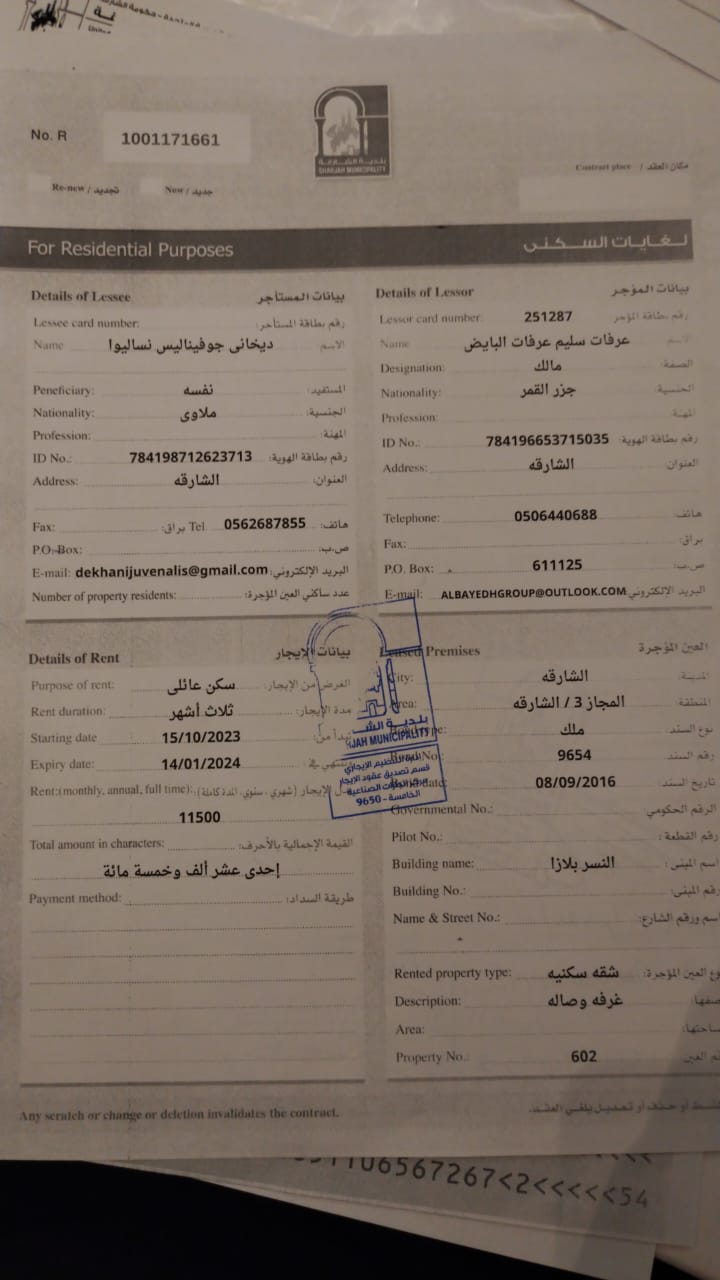 No. R 1001171661
بلدية الشارقة
SHARJAH MUNICIPALITY
Contract place / مكان العقد
Re-new / تجديد New / جديد
For Residential Purposes لغايات السكنى
Details of Lessee بيانات المستأجر
Lessee card number: رقم بطاقة المستأجر:
Name ديخانى جوفيناليس نساليوا الاسم
Peneficiary: نفسه المستفيد:
Nationality: ملاوى الجنسية:
Profession: المهنة:
ID No.: 784198712623713 رقم بطاقة الهوية:
Address: الشارقه العنوان:
Fax: براق: Tel 0562687855 هاتف:
P.O. Box: ص.ب:
E-mail: dekhanijuvenalis@gmail.com البريد الإلكتروني:
Number of property residents: عدد ساكني العين المؤجرة:
Details of Lessor بيانات المؤجر
Lessor card number: 251287 رقم بطاقة المؤجر
Name عرفات سليم عرفات البايض الاسم
Designation: مالك الصفة:
Nationality: جزر القمر الجنسية:
Profession: المهنة:
ID No.: 784196653715035 رقم بطاقة الهوية:
Address: الشارقه العنوان:
Telephone: 0506440688 هاتف:
Fax: براق:
P.O. Box: 611125 ص.ب:
E-mail: ALBAYEDHGROUP@OUTLOOK.COM البريد الالكتروني:
Details of Rent بيانات الإيجار
Purpose of rent: سكن عائلى الغرض من الإيجار:
Rent duration: ثلاث أشهر مدة الإيجار:
Starting date 15/10/2023
Expiry date: 14/01/2024
Rent:(monthly, annual, full time): الإيجار (شهري، سنوي، المدة كاملة):
11500
Total amount in characters: القيمة الإجمالية بالأحرف:
إحدى عشر ألف وخمسة مائة
Payment method: طريقة السداد:
Leased Premises العين المؤجرة
City: الشارقه المدينة:
Area: المجاز 3 / الشارقه المنطقة:
ملك نوع السند:
9654 رقم السند:
08/09/2016 تاريخ السند:
Governmental No.: الرقم الحكومي
Pilot No.: رقم القطعة:
Building name: النسر بلازا اسم المبنى:
Building No.: رقم المبنى:
Name & Street No.: اسم ورقم الشارع:
Rented property type: شقه سكنيه نوع العين المؤجرة:
Description: غرفه وصاله
Area:
Property No.: 602
بلدية الش
JAH MUNICIPALITY
قسم تصديق عقود الإيجار
الخامسة - 9650
Any scratch or change or deletion invalidates the contract. أو حذف أو تعديل يلغي العقد.